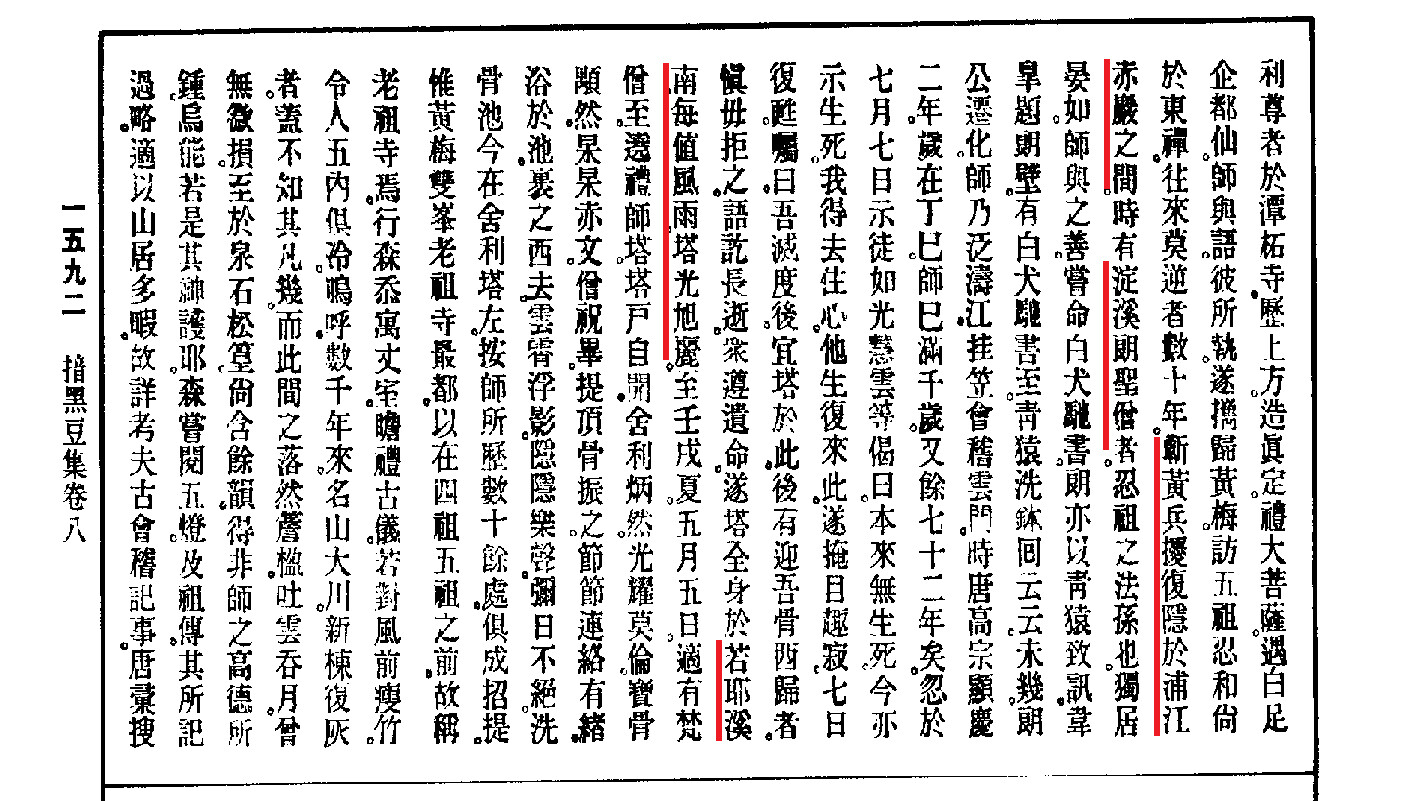 利尊者於潭柘寺。歷上方。造眞定。禮大菩薩。遇白足
企都仙。師與語。彼所執。遂擕歸黃梅。訪五祖忍和尙
於東禪。往來莫逆者數十年。斬黃兵擾。復隱於浦江
赤巖之間。時有淀溪朗聖僧者。忍祖之法孫也。獨居
晏如。師與之善。嘗命白犬馳書。朗亦以靑猿致訊。葦
皐題朗壁。有白犬馳書至。靑猿洗鉢回云云。未幾。朗
公遷化。師乃泛濤江。挂笠會稽雲門。時唐高宗顯慶
二年。歲在丁巳。師巳滿千歲。又餘七十二年矣。忽於
七月七日示徒如光慧雲等偈曰。本來無生死。今亦
示生死。我得去住心。他生復來此。遂掩目趣寂。七日
復甦。囑曰。吾滅度後。宜塔於此。後有迎吾骨西歸者。
愼毋拒之。語訖長逝。衆遵遺命。遂塔全身於若耶溪
南。每値風雨。塔光旭麗。至壬戌夏五月五日。適有梵
僧至。遶禮師塔。塔戸自開。舍利炳然。光耀莫倫。寶骨
顯然。杲杲赤文。僧祝畢。提頂骨振之。節節連絡有緖。
浴於池。裹之西去。雲霄浮影。隱隱樂聲。彌日不絕。洗
骨池今在舍利塔左。按師所歷數十餘處。俱成招提。
惟黃梅雙峯老祖寺最都。以在四祖五祖之前。故稱
老祖寺焉。行森忝寓丈室。瞻禮古儀。若對風前瘦竹。
令人五內俱冷。嗚呼。數千年來。名山大川。新棟復灰
者。蓋不知其凡幾。而此間之落然簷楹。吐雲吞月。曾
無微損。至於泉石松篁。尙含餘韻。得非師之高德所
鍾。烏能若是其神護耶。森嘗閱五燈。及祖傳。其所記
過略。適以山居多暇。故詳考夫古會稽記事。唐彙搜
一五九二　揞黑豆集卷八